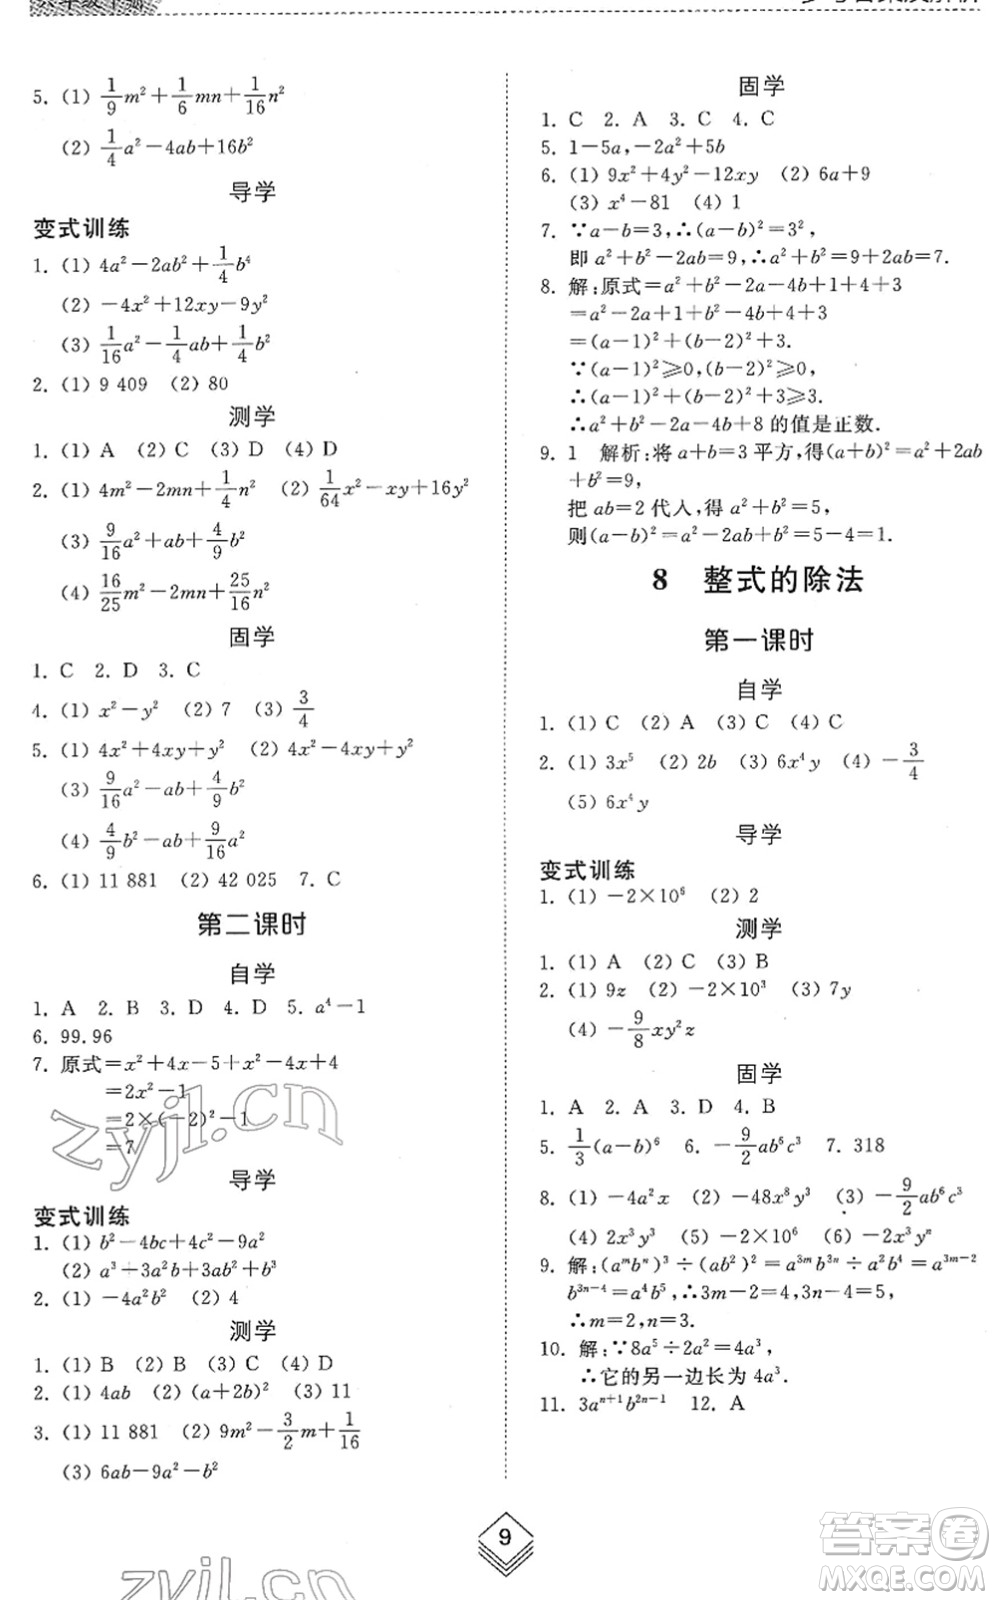 5. (1) 1/9 m² + 1/6 mn + 1/16 n²
(2) 1/4 a² − 4ab + 16b²
导学
变式训练
1. (1) 4a² − 2ab² + 1/4 b⁴
(2) −4x² + 12xy − 9y²
(3) 1/16 a² − 1/4 ab + 1/4 b²
2. (1) 9 409 (2) 80
测学
1. (1) A (2) C (3) D (4) D
2. (1) 4m² − 2mn + 1/4 n² (2) 1/64 x² − xy + 16y²
(3) 9/16 a² + ab + 4/9 b²
(4) 16/25 m² − 2mn + 25/16 n²
固学
1. C 2. D 3. C
4. (1) x² − y² (2) 7 (3) 3/4
5. (1) 4x² + 4xy + y² (2) 4x² − 4xy + y²
(3) 9/16 a² − ab + 4/9 b²
(4) 4/9 b² − ab + 9/16 a²
6. (1) 11 881 (2) 42 025 7. C
第二课时
自学
1. A 2. B 3. D 4. D 5. a⁴ − 1
6. 99.96
7. 原式 = x² + 4x − 5 + x² − 4x + 4
= 2x² − 1
= 2×(−2)² − 1
= 7
导学
变式训练
1. (1) b² − 4bc + 4c² − 9a²
(2) a³ + 3a²b + 3ab² + b³
2. (1) −4a²b² (2) 4
测学
1. (1) B (2) B (3) C (4) D
2. (1) 4ab (2) (a+2b)² (3) 11
3. (1) 11 881 (2) 9m² − 3/2 m + 1/16
(3) 6ab − 9a² − b²
固学
1. C 2. A 3. C 4. C
5. 1−5a, −2a²+5b
6. (1) 9x² + 4y² − 12xy (2) 6a+9
(3) x⁴ − 81 (4) 1
7. ∵a−b=3, ∴(a−b)²=3²,
即 a²+b²−2ab=9, ∴a²+b²=9+2ab=7.
8. 解:原式=a²+b²−2a−4b+1+4+3
=a²−2a+1+b²−4b+4+3
=(a−1)²+(b−2)²+3.
∵(a−1)²⩾0,(b−2)²⩾0,
∴(a−1)²+(b−2)²+3⩾3.
∴a²+b²−2a−4b+8 的值是正数.
9. 1 解析:将 a+b=3 平方,得(a+b)²=a²+2ab
+b²=9,
把 ab=2 代入,得 a²+b²=5,
则(a−b)²=a²−2ab+b²=5−4=1.
8 整式的除法
第一课时
自学
1. (1) C (2) A (3) C (4) C
2. (1) 3x⁵ (2) 2b (3) 6x⁴y (4) −3/4
(5) 6x⁴y
导学
变式训练
1. (1) −2×10⁶ (2) 2
测学
1. (1) A (2) C (3) B
2. (1) 9z (2) −2×10³ (3) 7y
(4) −9/8 xy²z
固学
1. A 2. A 3. D 4. B
5. 1/3 (a−b)⁶ 6. −9/2 ab⁶c³ 7. 318
8. (1) −4a²x (2) −48x⁸y³ (3) −9/2 ab⁶c³
(4) 2x³y³ (5) −2×10⁶ (6) −2x³yⁿ
9. 解:(aᵐbⁿ)³÷(ab²)²=a³ᵐb³ⁿ÷a²b⁴=a³ᵐ⁻²
b³ⁿ⁻⁴=a⁴b⁵, ∴3m−2=4, 3n−4=5,
∴m=2, n=3.
10. 解:∵8a⁵÷2a²=4a³,
∴它的另一边长为 4a³.
11. 3aⁿ⁺¹b²ⁿ⁻¹ 12. A
9
zyjl.cn
zyjl.cn
答案卷
MXQE.COM